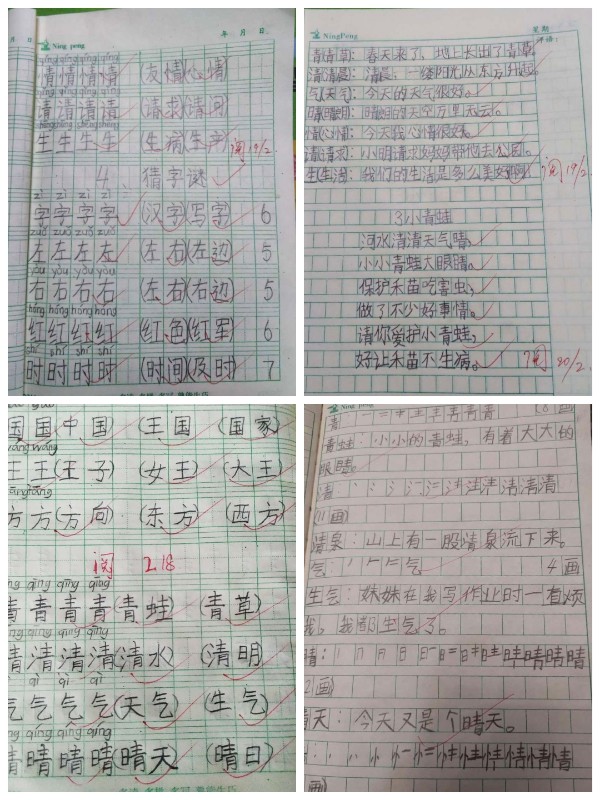 Ning peng
年 月 日
qíng qíng qíng qíng
情 情 情 情 (友情)(心情)
qǐng qǐng qǐng qǐng
请 请 请 请 (请求)(请问)
shēng shēng shēng shēng
生 生 生 生 (生病)(生产)
阅 19/2
4 猜字谜
zì zì zì zì
字 字 字 字 (汉字)(写字) 6
zuǒ zuǒ zuǒ zuǒ
左 左 左 左 (左右)(左边) 5
yòu yòu yòu yòu
右 右 右 右 (左右)(右边) 5
hóng hóng hóng hóng
红 红 红 红 (红色)(红军) 6
shí shí shí shí
时 时 时 时 (时间)(及时) 7
NingPeng
星期
评语:
青(青草): 春天来了,地上长出了青草。
清(清晨): 清晨,一缕阳光从东方升起。
气(天气): 今天的天气很好。
情(心情): 今天我心情很好。
生(生活): 我们的生活是多么美好啊!
阅 19/2
3小青蛙
河水清清天气晴,
小小青蛙大眼睛。
保护禾苗吃害虫,
做了不少好事情。
请你爱护小青蛙,
好让禾苗不生病。
阅 20/2
国 国(中国) (王国) (国家)
王 王(王子) (女王) (大王)
方 方(方向) (东方) (西方)
阅 2.18
qīng qīng qīng
青 青 青 青(青蛙) (青草)
qīng qīng qīng
清 清 清 清(清水) (清明)
qì qì qì
气 气 气 气(天气) (生气)
qíng qíng qíng
晴 晴 晴 晴(晴天) (晴日)
Ning peng
青蛙: 小小的青蛙,有着大大的
眼睛。
(11画)
清泉: 山上有一股清泉流下来。
气: 气 4画
生气: 妹妹在我写作业时一直烦
我,我都生气了。
晴天: 今天又是个晴天。